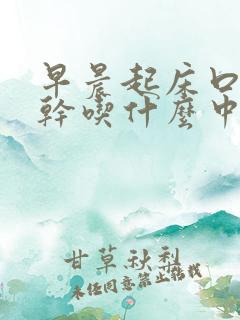 早晨起床口
幹喫什麼中
甘草秋梨
未經同意禁止轉載